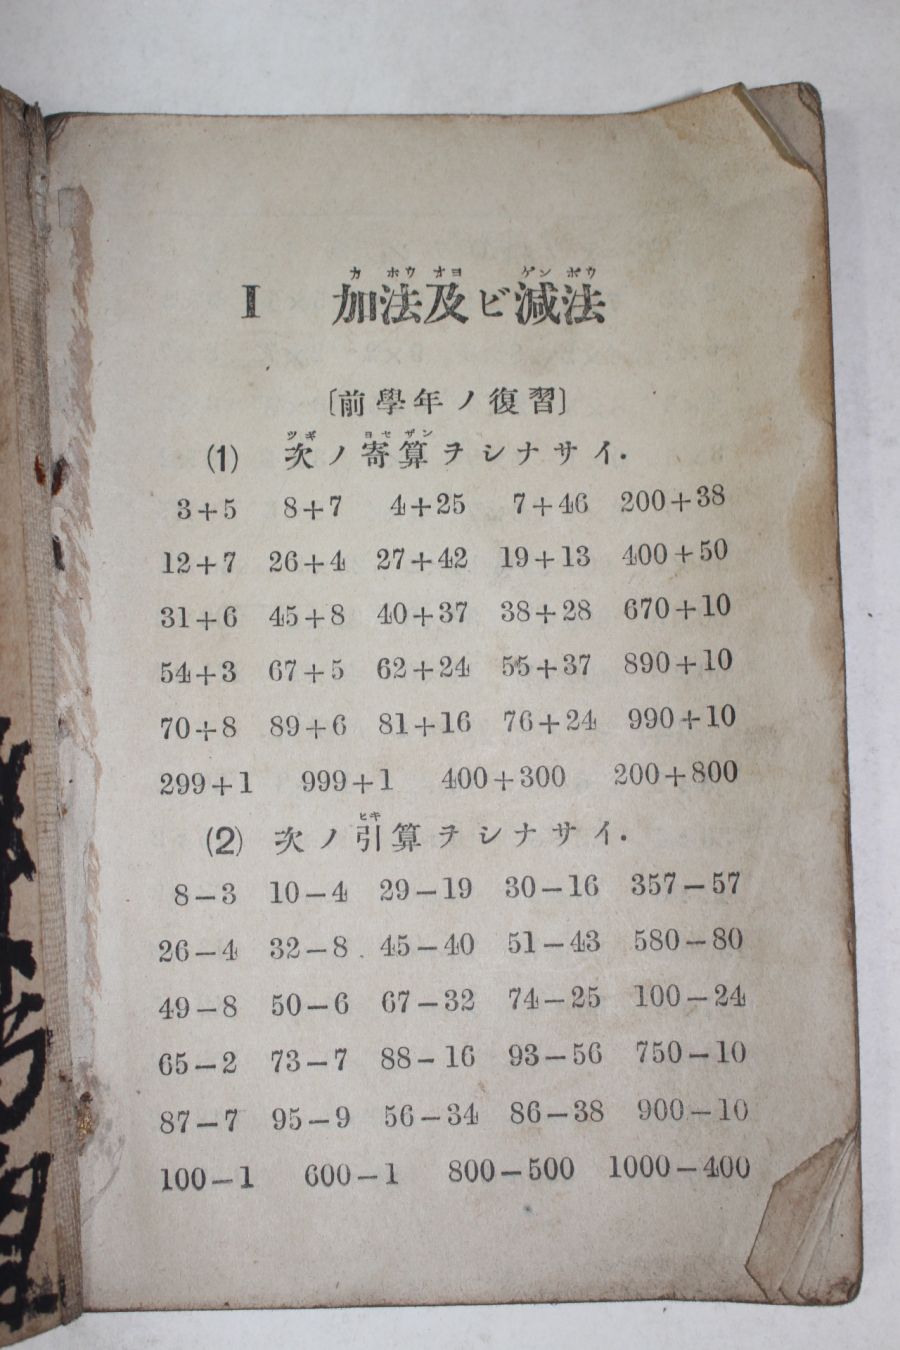 I 加法及ビ減法
〔前學年ノ復習〕
(1) 次ノ寄算ヲシナサイ.
3+5 8+7 4+25 7+46 200+38
12+7 26+4 27+42 19+13 400+50
31+6 45+8 40+37 38+28 670+10
54+3 67+5 62+24 55+37 890+10
70+8 89+6 81+16 76+24 990+10
299+1 999+1 400+300 200+800
(2) 次ノ引算ヲシナサイ.
8-3 10-4 29-19 30-16 357-57
26-4 32-8 45-40 51-43 580-80
49-8 50-6 67-32 74-25 100-24
65-2 73-7 88-16 93-56 750-10
87-7 95-9 56-34 86-38 900-10
100-1 600-1 800-500 1000-400